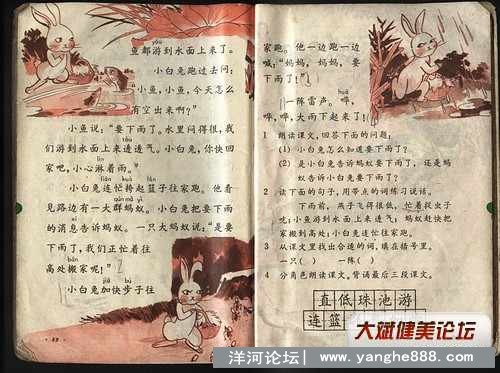 鱼都游到水面上来了。
yóu
小白兔跑过去问：
“小鱼，小鱼，今天怎么
有空出来啊？”
小鱼说：“要下雨了。水里闷得很，我
tòu
们游到水面上来透透气。小白兔，你快回
lín
家吧，小心淋着雨。”
lián kuà lán
小白兔连忙挎起篮子往家跑。他看
qún mǎ yǐ
见路边有一大群蚂蚁。小白兔把要下雨
的消息告诉蚂蚁。一只大蚂蚁说：“是要
下雨了，我们正忙着往
高处搬家呢！”
jiā bù
小白兔加快步子往
家跑。他一边跑一边
hǎn
喊：“妈妈，妈妈，要
下雨了！”
huā
一阵雷声。哗，
哗，哗，大雨下起来了！
1 朗读课文，回答下面的问题。
(1) 小白兔怎么知道要下雨了？
(2) 是小白兔告诉蚂蚁要下雨了，还是蚂
蚁告诉小白兔要下雨了？
2 读下面的句子，用带点的词练习说话。
下雨前，燕子飞得很低，忙着捉虫子
吃；小鱼游到水面上来透气；蚂蚁赶快把
家搬到高处；小白兔连忙往家跑。
3 从课文里找出合适的词，填在括号里。
一只( ) 一阵( )
4 分角色朗读课文。背诵最后三段课文。
直低珠池游
连篮
大斌健美论坛
洋河论坛| www.yanghe888.com